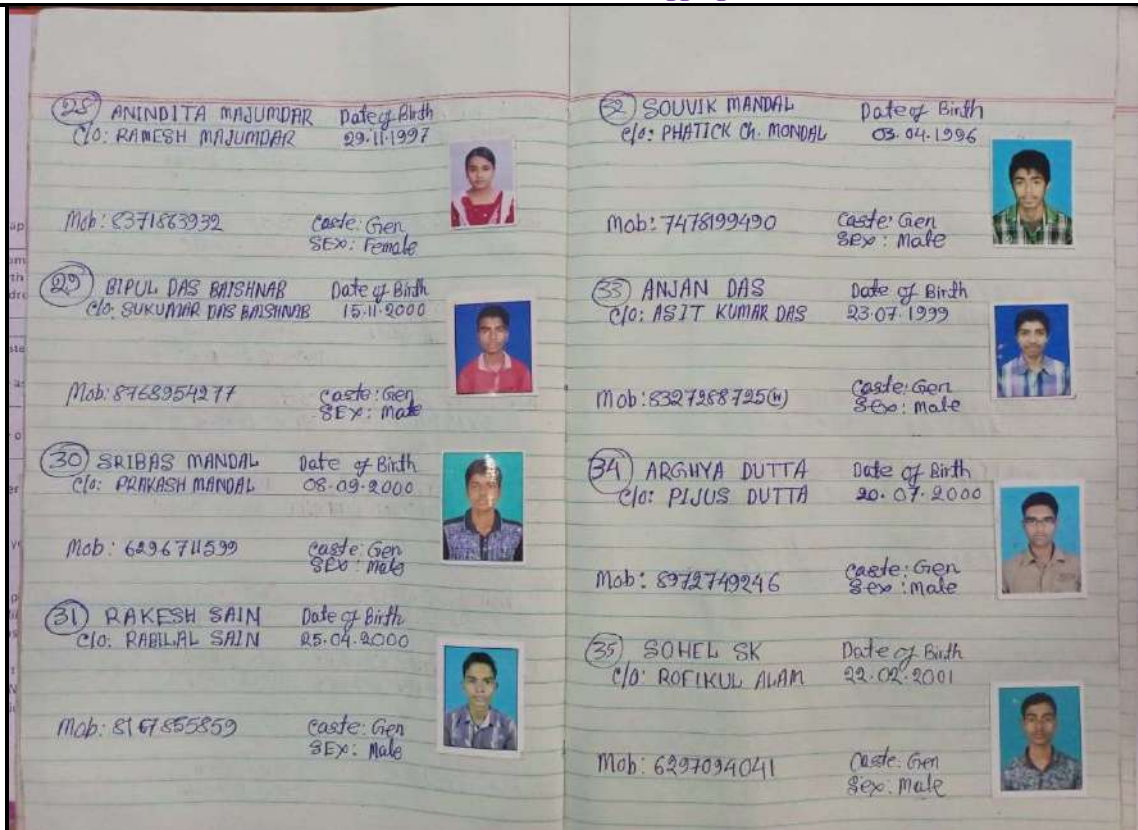 28 ANINDITA MAJUMDAR Date of Birth
C/O: RAMESH MAJUMDAR 29.11.1997
Mob: 8371863932 Caste: Gen
SEX: Female
29 BIPUL DAS BAISHNAB Date of Birth
C/O: SUKUMAR DAS BAISHNAB 15.11.2000
Mob: 8768954277 Caste: Gen
SEX: Male
30 SRIBAS MANDAL Date of Birth
C/O: PRAKASH MANDAL 08.09.2000
Mob: 6296711599 Caste: Gen
SEX: Male
31 RAKESH SAIN Date of Birth
C/O: RABILAL SAIN 25.04.2000
Mob: 8167855859 Caste: Gen
SEX: Male
32 SOUVIK MANDAL Date of Birth
C/O: PHATICK Ch. MONDAL 03.04.1996
Mob: 7478199490 Caste: Gen
SEX: Male
33 ANJAN DAS Date of Birth
C/O: ASIT KUMAR DAS 23.07.1999
Mob: 8327288725(W) Caste: Gen
Sex: Male
34 ARGHYA DUTTA Date of Birth
C/O: PIJUS DUTTA 20.07.2000
Mob: 8972749246 Caste: Gen
Sex: Male
35 SOHEL SK Date of Birth
C/O: ROFIKUL ALAM 22.02.2001
Mob: 6297094041 Caste: Gen
Sex: Male